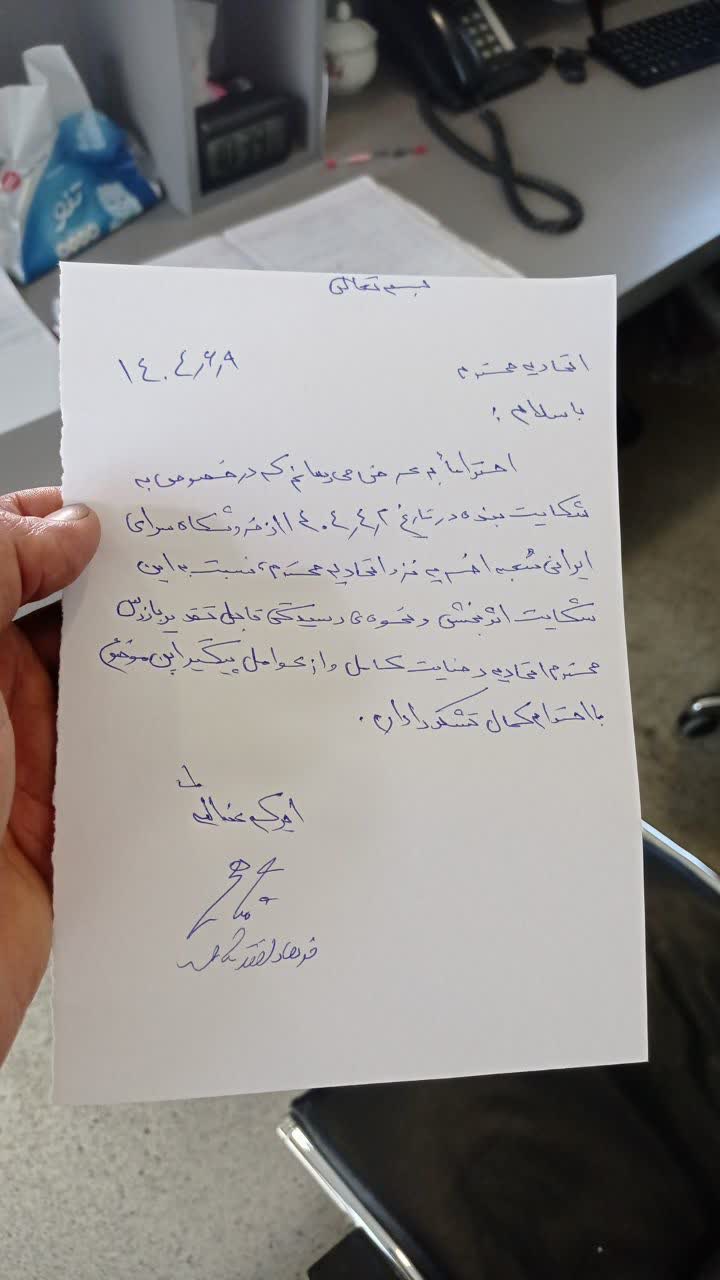 بسمه تعالی
اتحادیه محترم
۱۴۰۴/۶/۹
با سلام :
احتراماً به عرض می رسانم که در خصوص به
شکایت بنده در تاریخ ۱۴۰۴/۴/۲ از فروشگاه سرای
ایرانی شعبه نزد اتحادیه محترم، نسبت به این
شکایت اثربخشی و نحوه ی رسیدگی قابل تقدیر بازرس
محترم اتحادیه رضایت کامل و از عوامل پیگیر این موضوع
با احترام کمال تشکر را دارن.
تنو